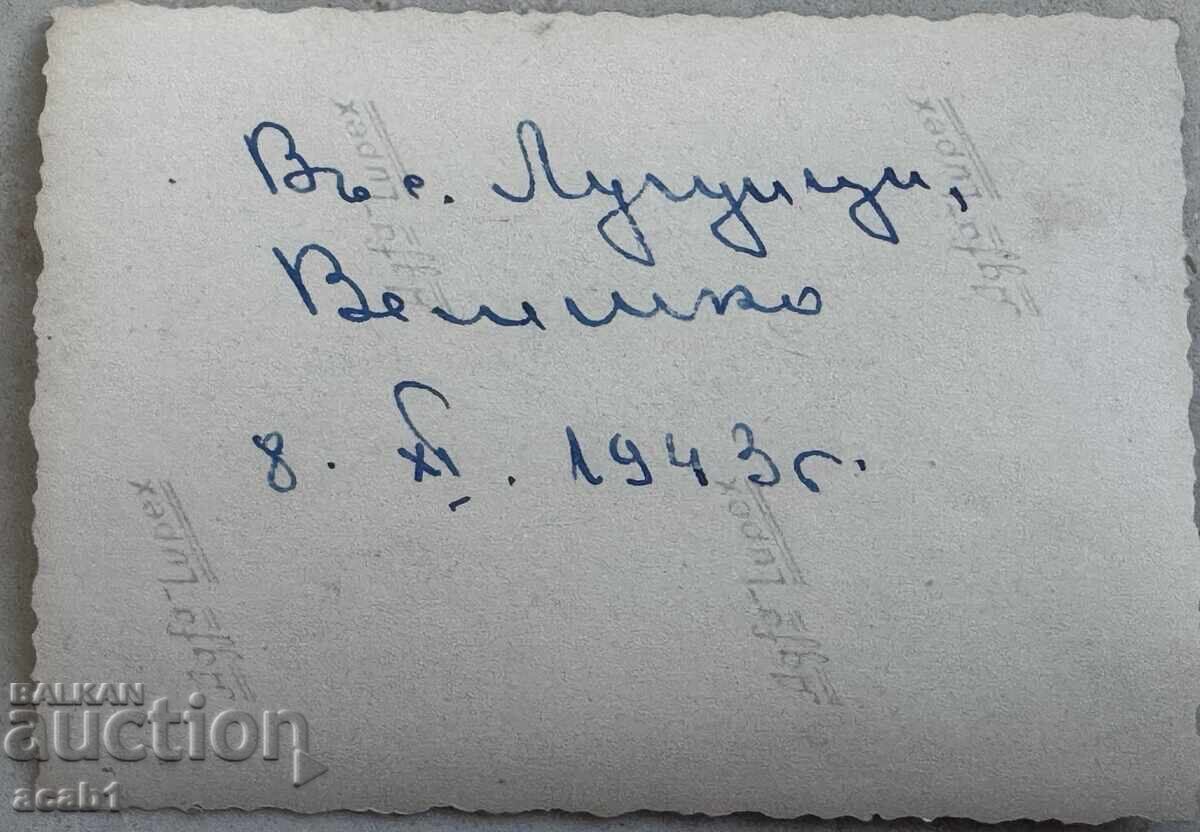 Въ с. Лугунци,
Велешко
8. XI. 1943 г.
Agfa-Lupex
Agfa-Lupex
Agfa-Lupex
Agfa-Lupex
BALKAN
auction
acab1